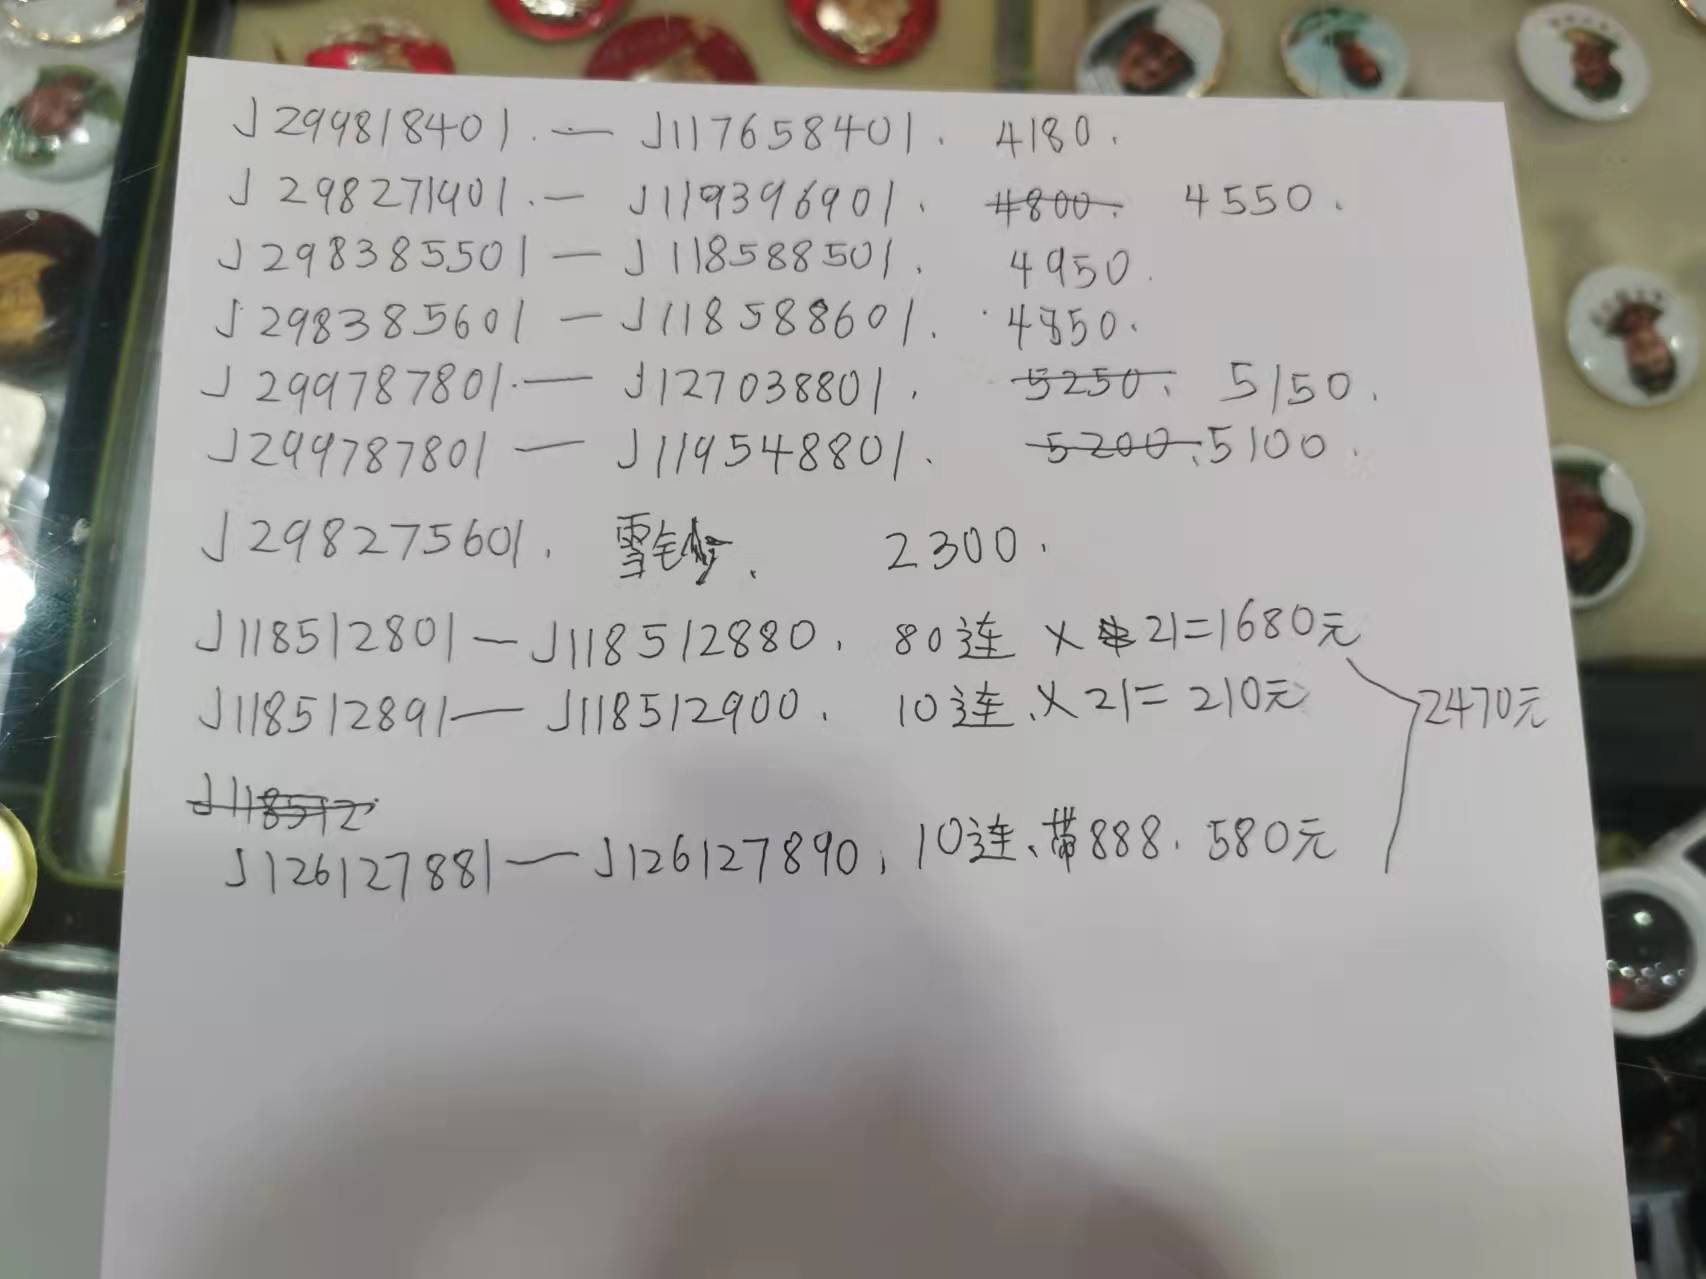 J299818401.—J117658401. 4180.
J298271901.—J119396901. 4800. 4550.
J298385501—J118588501. 4950.
J298385601—J118588601. 4850.
J299787801.—J127038801. 5250. 5150.
J299787801—J119548801. 5200. 5100.
J298275601. 雪钞. 2300.
J118512801—J118512880. 80连 × 21=1680元
J118512891—J118512900. 10连、× 21=210元
2470元
J118512
J126127881—J126127890. 10连、带888. 580元